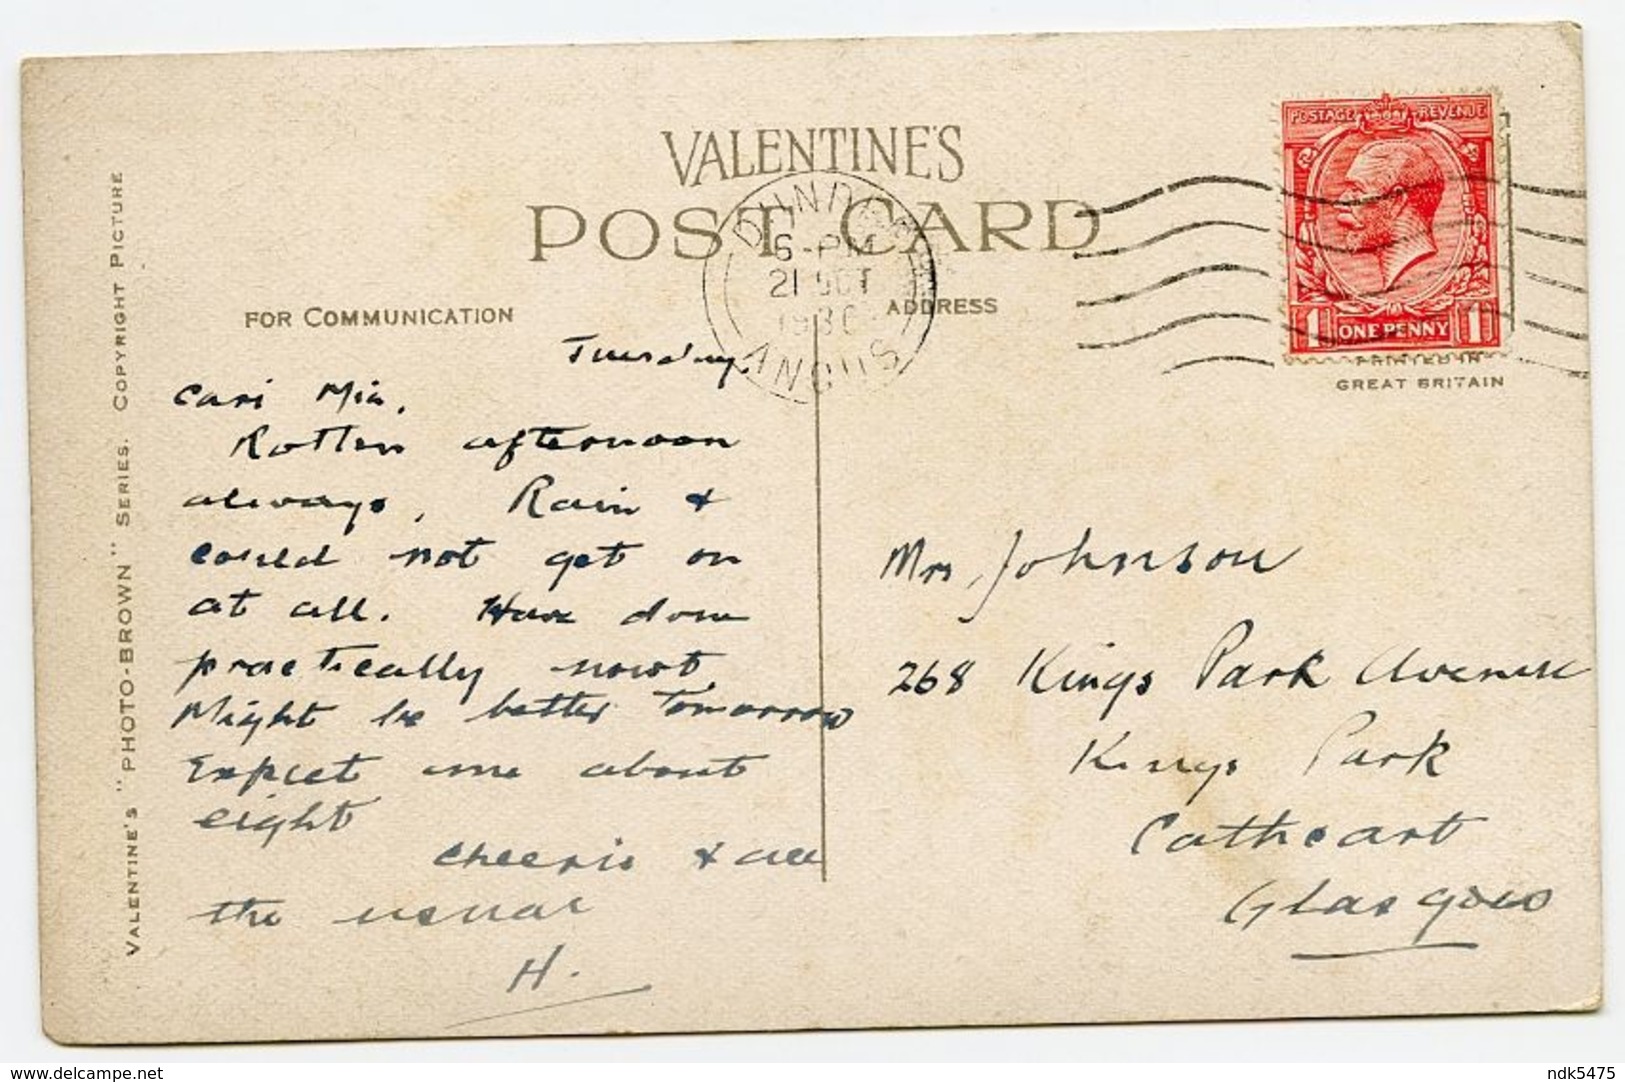 VALENTINE'S
POST CARD
DUNDEE
6-PM
21 OCT
1930
ANGUS
POSTAGE REVENUE
1 ONE PENNY 1
PRINTED IN
GREAT BRITAIN
FOR COMMUNICATION
ADDRESS
VALENTINE'S "PHOTO-BROWN" SERIES. COPYRIGHT PICTURE
Tuesday.
Cari Mia,
Rotten afternoon
always, Rain &
could not get on
at all. Have done
practically nowt
Might be better tomorrow
Expect me about
eight
Cheerio & all
the usual
H.
Mrs Johnson
268 Kings Park Avenue
Kings Park
Cathcart
Glasgow
www.delcampe.net
ndk5475